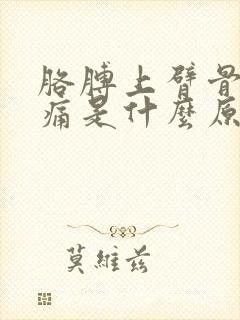 胳膊上臂骨
痛是什麼原
莫維茲